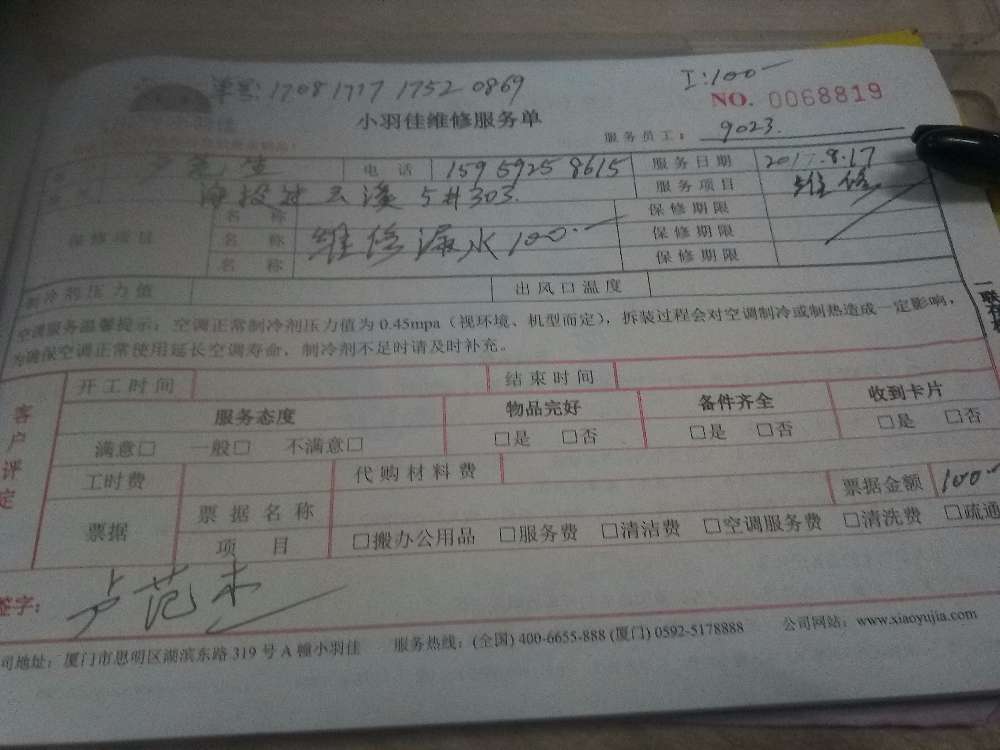 单号: 1708 1717 1752 0869
I:100-
NO. 0068819
小羽佳维修服务单
服务员工: 9023.
电 话 159 5925 8615 服务日期 2017.8.17
海投过云溪 5#303. 服务项目 维修
名 称 保修期限
保修项目 名 称 维修漏水 100.- 保修期限
名 称 保修期限
制冷剂压力值 出风口温度
空调服务温馨提示: 空调正常制冷剂压力值为0.45mpa（视环境、机型而定），拆装过程会对空调制冷或制热造成一定影响，
为确保空调正常使用延长空调寿命，制冷剂不足时请及时补充。
客户评定
开工时间 结束时间
服务态度 物品完好 备件齐全 收到卡片
满意□ 一般□ 不满意□ □是 □否 □是 □否 □是 □否
工时费 代购材料费
票据金额 100.-
票据 票据名称
项 目 □搬办公用品 □服务费 □清洁费 □空调服务费 □清洗费 □疏通
签字: 卢范木
司地址: 厦门市思明区湖滨东路319号A幢小羽佳 服务热线: (全国) 400-6655-888 (厦门) 0592-5178888 公司网站: www.xiaoyujia.com